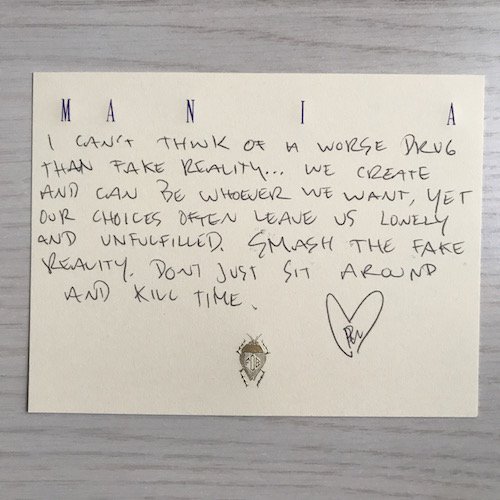 M A N I A
I CAN'T THINK OF A WORSE DRUG
THAN FAKE REALITY... WE CREATE
AND CAN BE WHOEVER WE WANT, YET
OUR CHOICES OFTEN LEAVE US LONELY
AND UNFULFILLED. SMASH THE FAKE
REALITY. DONT JUST SIT AROUND
AND KILL TIME.
FOB